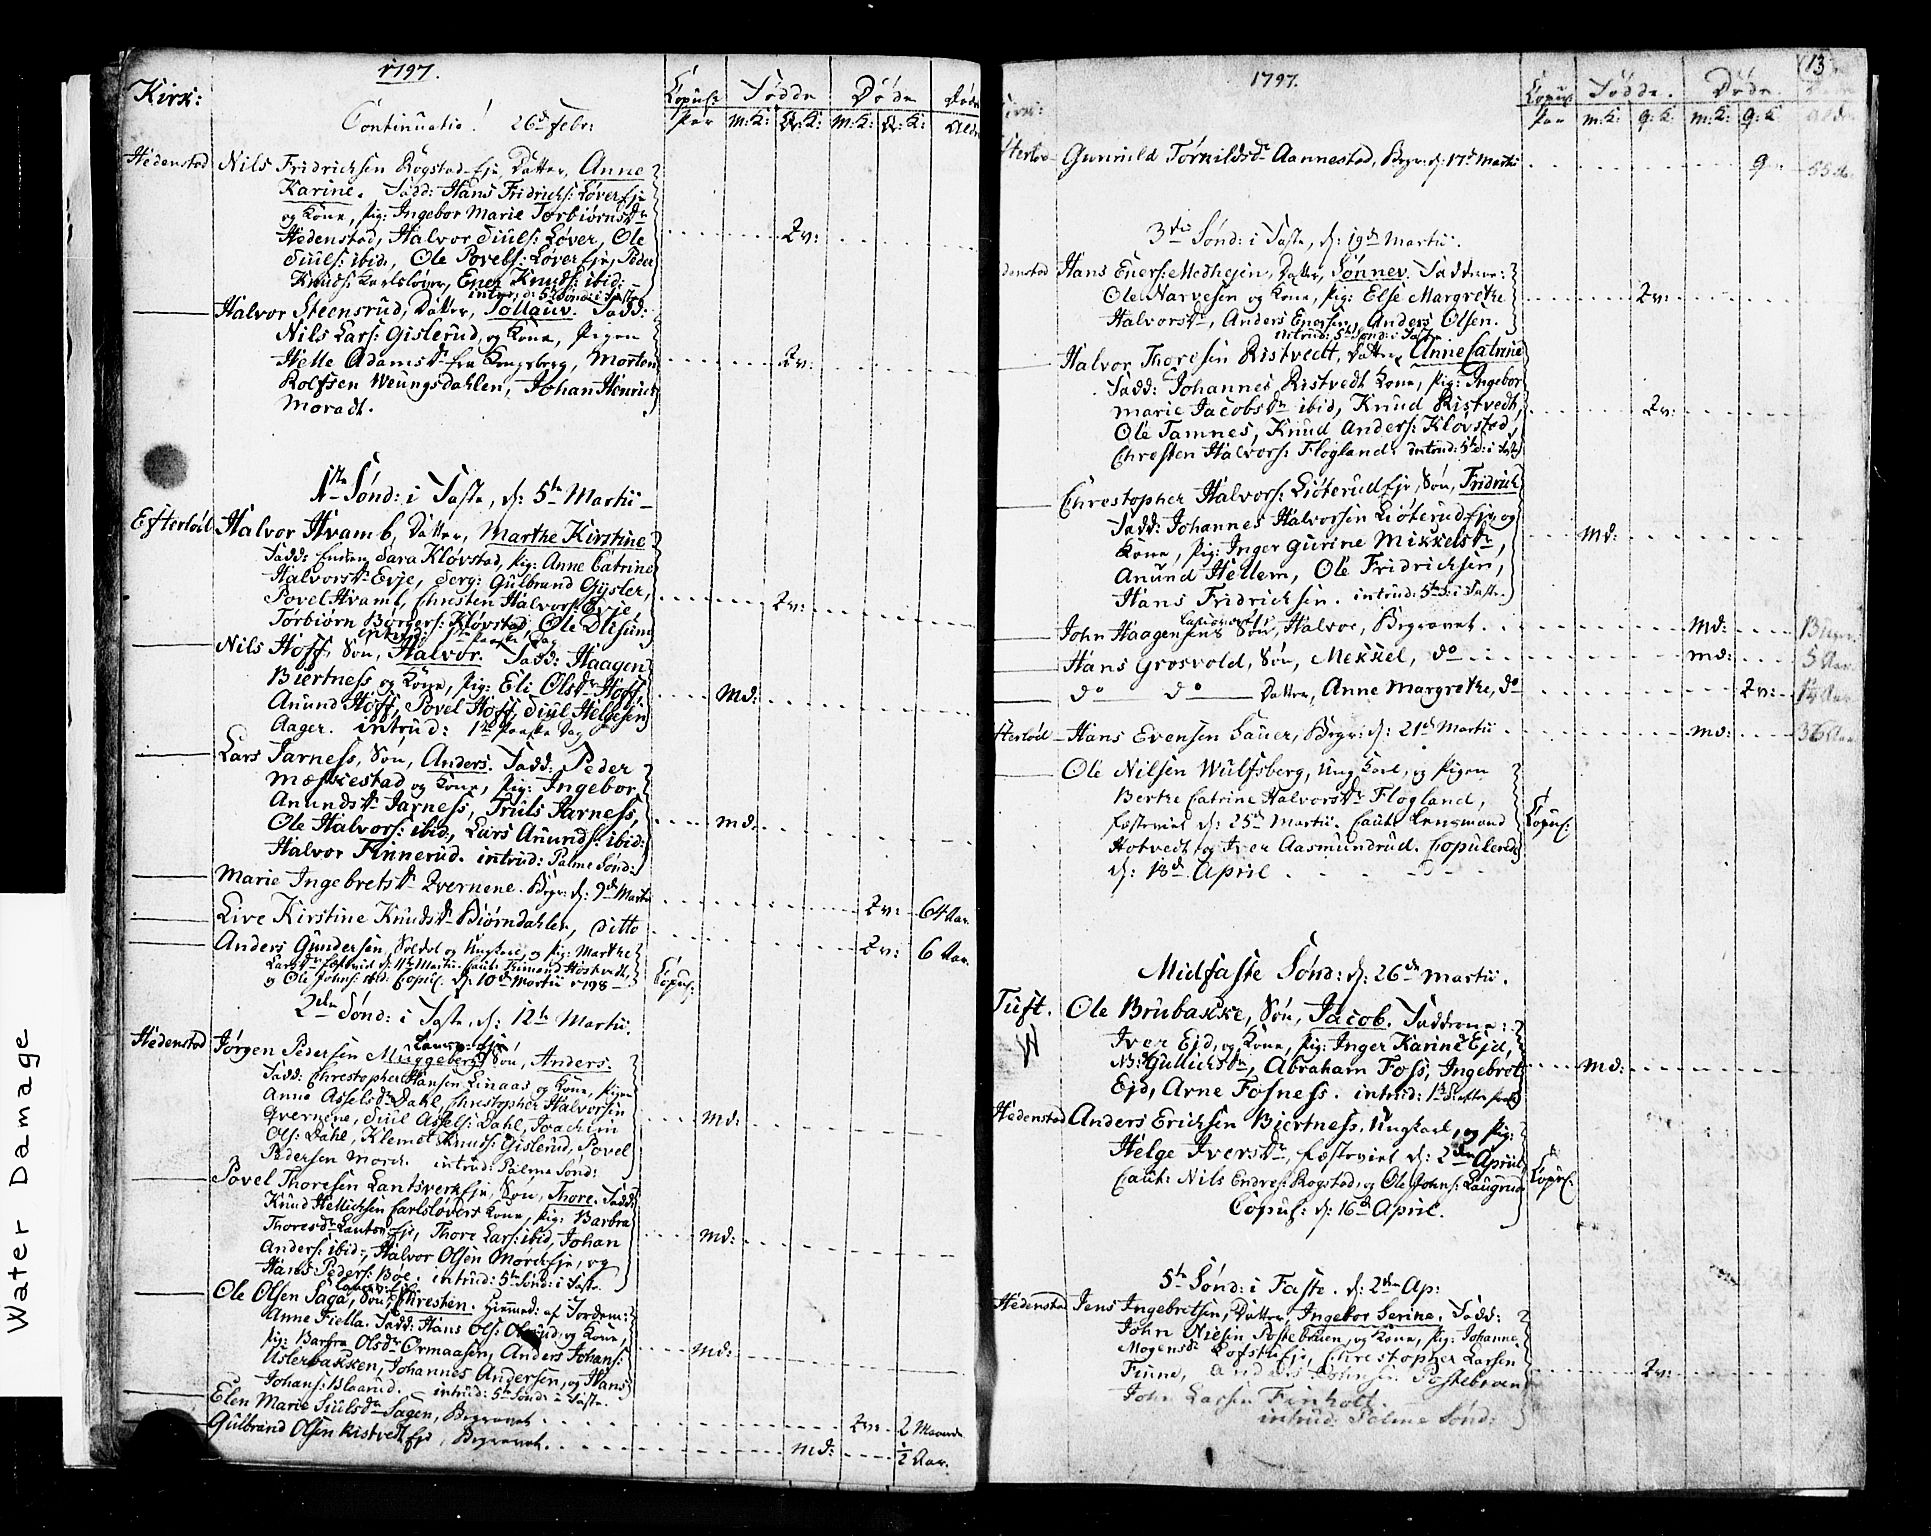 Water Damage
1797.
Kirk: Continuatio! 26de Febr: Copul: Par Fødde M:K: Qv:K: Døde M:K: Qv:K: Døde Alde
Hedenstad Nils Fridrichsen Rogstad Eje, Datter, Anne
Karine. Fadd: Hans Fridrichs: Løver Eje
og Kone, Pig: Ingebor Marie Torbiørnsdr
Hedenstad, Halvor Siuls: Løver, Ole Qv:
Siuls: ibid, Ole Povels: Løver Eje, Peder
Knuds: Carlsløver, Ener Knuds: ibid:
introd: d: 5te Sønd: i Faste
Halvor Steensrud, Datter, Tollauv. Fadd:
Nils Lars: Gislerud, og Kone, Pigen
Helle Adamsdr fra Kongsberg, Morten Qv:
Rolfsen Weungsdahlen, Johan Henrich
Moradt.
1ste Sønd: i Faste, d: 5te Martii
Efterløit Halvor Hvamb, Datter, Marthe Kirstine
Fadd: Enken Sara Kløvstad, Pig: Anne Catrine
Halvorsdr Evje, Serg: Gulbrand Gysler,
Povel Hvamb, Christen Halvors: Evje, Qv:
Torbiørn Børgers: Kløvstad, Ole Dlisung
introd: 1ste Paaske Dag
Nils Hoff, Søn, Halvor. Fadd: Haagen
Biertness og Kone, Pig: Eli Olsdr Hoff, Md:
Anund Hoff, Povel Hoff, Siul Helgesen
Aager. introd: 1ste Paaske Dag
Lars Jarness, Søn, Anders. Fadd: Peder
Mæskestad og Kone, Pig: Ingebor
Anundsdr Jarness, Truls Jarness,
Ole Halvors: ibid, Lars Anunds: ibid: md:
Halvor Finnerud. introd: Palme Sønd:
Marie Ingebretsdr Qvernene. Begr: d: 9de Martii Qv: 64 Aar.
Live Kirstine Knudsdr Biørndahlen, Ditto Qv: 6 Aar.
Anders Gundersen, Soldat og Ungkarl, og Pig: Marthe
Larsdr Fæstevied d: 11te Martii. Caut: Trumond Hostvedt, Copul:
og Ole Johns: ibid. Copul: d: 10de Martii 1798
2den Sønd: i Faste, d: 12te Martii.
Hedenstad Jørgen Pedersen Muggeberg Søn, Anders.
Fadd: Christopher Hansen Linaas og Kone, Pigen
Anne Asselsdr Dahl, Christopher Halvorsen
Qvernene, Siul Assels: Dahl, Joachim md:
Ols: Dahl, Klemet Knuds: Gislerud, Povel
Pedersen Morck. introd: Palme Sønd:
Povel Thoresen Lantsverk Eje, Søn, Thore. Fadd:
Knud Hellichsen Carlsløvers Kone, Pig: Barbra
Thoresdr Lantsv Eje, Thore Lars: ibid, Johan md:
Anders: ibid:, Halvor Olsen Mørck Eje, og
Hans Peders: Bøe. introd: 5te Sønd: i Faste.
Ole Olsen Saga, Søn, Christen. Hiemmed: af Jordem:
Anne Fiella. Fadd: Hans Ols: og Kone,
Pig: Barbra Olsdr Ormaasen, Anders Johans: md:
Uslerbakken, Johannes Andersen, og Hans
Johans: Blaarud. introd: 5te Sønd: i Faste.
Elen Marie Siulsdr Sagen, Begravet. Qv: 2 Maaneder
Gulbrand Olsen Ristvedt Eje, Begravet. md: ½ Aar.
1797. 13
Kirk: Copul: Par Fødde. M:K: Q:K: Døde. M:K: Q:K: Alder
Efterløit Gunnild Torkildsdr Aannestad, Begr: d: 17de Martii Q 55 Aar
3die Sønd: i Faste, d: 19de Martii.
Hedenstad Hans Eners: Medhejen, Datter, Sønnev. Faddere:
Ole Narvesen og Kone, Pig: Else Margrethe Qv:
Halvorsdr, Anders Enersen, Anders Olsen.
introd: 5te Sønd: i Faste
Halvor Thoresen Ristvedt, Datter, Anne Catrine
Fadd: Johannes Ristvedt Kone, Pig: Ingebor
Marie Jacobsdr ibid, Knud Ristvedt, Qv:
Ole Tamnes, Knud Anders: Kløvstad,
Christen Halvors: Flogland. introd: 5te S: i Faste
Christopher Halvors: Liøterud Eje, Søn, Fridrich
Fadd: Johannes Halvorsen Liøterud Eje, og
Kone, Pig: Inger Gurine Mikkelsdr, md:
Anund Hellem, Ole Fridrichsen,
Hans Fridrichsen. introd: 5te S: i Faste.
John Haagensens Søn, Halvor, Begravet. Md:
Hans Grosvold, Søn, Mekkel, do md: 5 Aar.
do do Datter, Anne Margrethe, do Qv: 14 Aar
Efterløit Hans Evensen Sauer, Begr: d: 21de Martii md: 36 Aar
Ole Nilsen Wulfsberg, Ung Karl, og Pigen
Berthe Catrine Halvorsdr Flogland,
Fæstevied d: 25de Martii. Caut: Lensmand Copul:
Hotvedt og Iver Aasmundrud. Copulerede
d: 18de April
Midfaste Sønd: d: 26de Martii.
Tuft. Ole Brubakke, Søn, Jacob. Faddere:
Iver Ejd, og Kone, Pig: Inger Karine Ejd,
NB: Gullichsdr, Abraham Foss, Ingebret md:
Ejd, Arne Fosness. introd: 1ste
Hedenstad Anders Erichsen Biertness, Ungkarl, og Pig:
Helge Iversdr, Fæstevied d: 2den Aprill
Caut: Nils Endres: Rogstad, og Ole Johns: Laugrud Copul:
Copul: d: 16de April.
5te Sønd: i Faste. d: 2den Ap:
Hedenstad Jens Ingebretsen, Datter, Ingebor Serine. Fadd:
John Nielsen Postebruen, og Kone, Pig: Johanne
Mogensdr Lofstu Eje, Christopher Larsen
Finne, Anders Johnsen Postebroen Qv:
John Larsen Finholt.
introd: Palme Sønd: